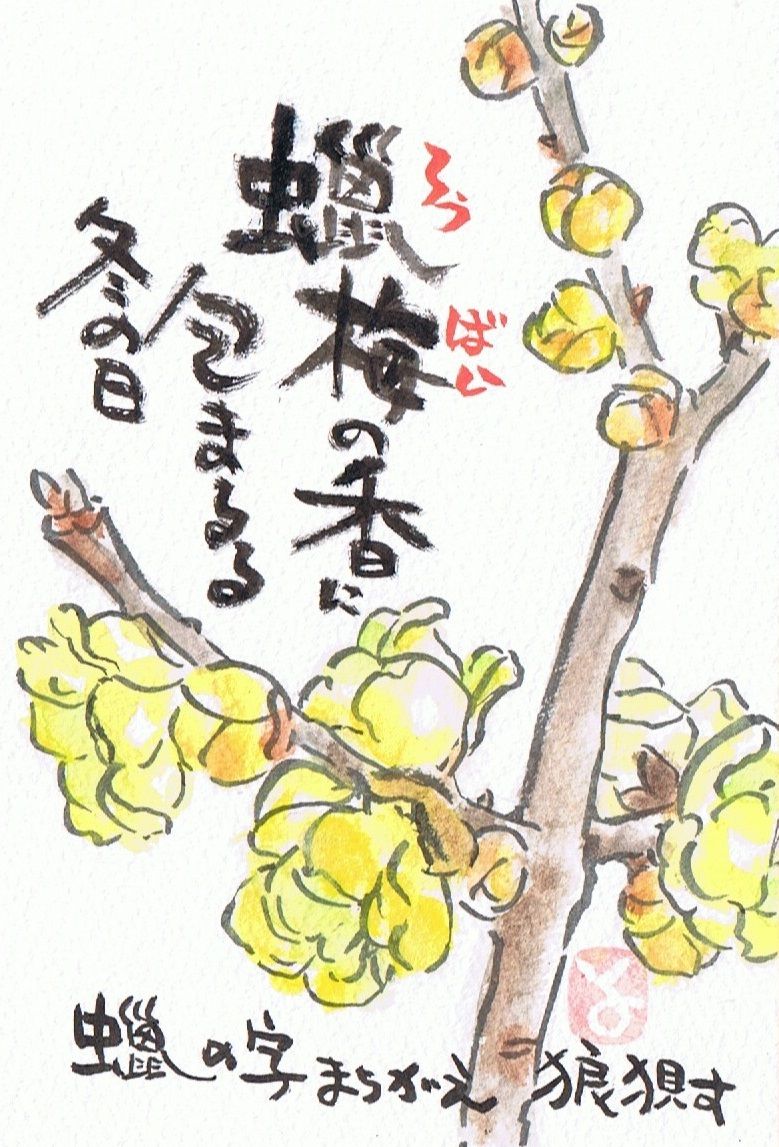 蠟梅の香に
ろうばい
包まるる
冬の日
蠟の字まちがえ 狼狽す
よ